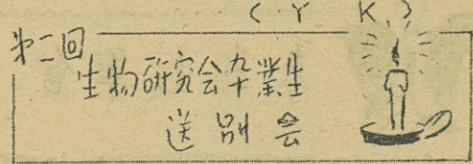 (Y K.)
第二回
生物研究会卆業生
送別会